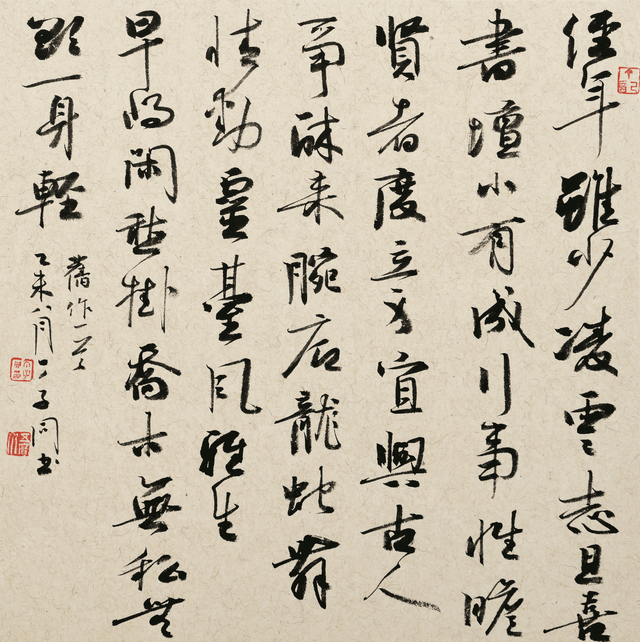 經年雖少凌雲志且喜
書壇小有成行事惟瞻
賢者度立身宜與古人
爭酣来腕底龍蛇舞
情動靈臺風雅生
早將閑愁掛喬木無私無
欲一身輕
舊作一首
乙未八月子同书